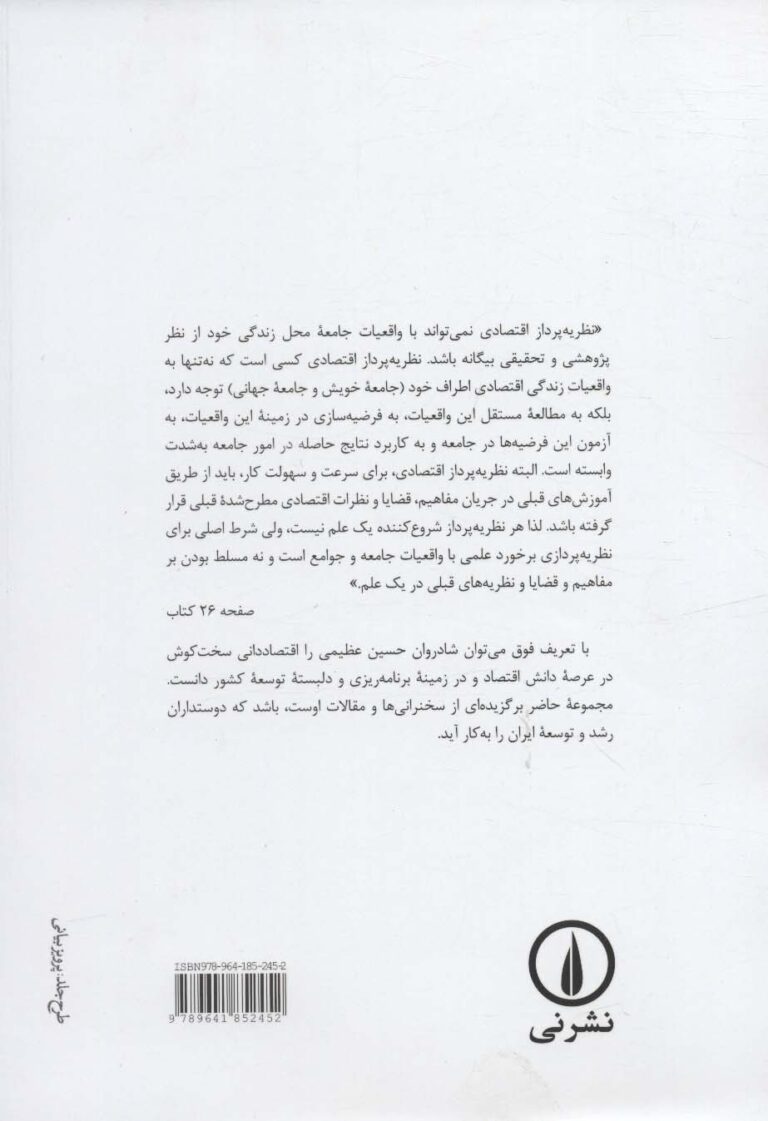 «نظریه‌پرداز اقتصادی نمی‌تواند با واقعیات جامعهٔ محل زندگی خود از نظر
پژوهشی و تحقیقی بیگانه باشد. نظریه‌پرداز اقتصادی کسی است که نه‌تنها به
واقعیات زندگی اقتصادی اطراف خود (جامعهٔ خویش و جامعهٔ جهانی) توجه دارد،
بلکه به مطالعهٔ مستقل این واقعیات، به فرضیه‌سازی در زمینهٔ این واقعیات، به
آزمون این فرضیه‌ها در جامعه و به کاربرد نتایج حاصله در امور جامعه به‌شدت
وابسته است. البته نظریه‌پرداز اقتصادی، برای سرعت و سهولت کار، باید از طریق
آموزش‌های قبلی در جریان مفاهیم، قضایا و نظرات اقتصادی مطرح‌شدهٔ قبلی قرار
گرفته باشد. لذا هر نظریه‌پرداز شروع‌کننده یک علم نیست، ولی شرط اصلی برای
نظریه‌پردازی برخورد علمی با واقعیات جامعه و جوامع است و نه مسلط بودن بر
مفاهیم و قضایا و نظریه‌های قبلی در یک علم.»
صفحه ۲۶ کتاب
با تعریف فوق می‌توان شادروان حسین عظیمی را اقتصاددانی سخت‌کوش
در عرصهٔ دانش اقتصاد و در زمینهٔ برنامه‌ریزی و دلبستهٔ توسعهٔ کشور دانست.
مجموعهٔ حاضر برگزیده‌ای از سخنرانی‌ها و مقالات اوست، باشد که دوستداران
رشد و توسعهٔ ایران را به‌کار آید.
طرح جلد: پرویز بیانی
ISBN978-964-185-245-2
9 789641 852452
نشرنی